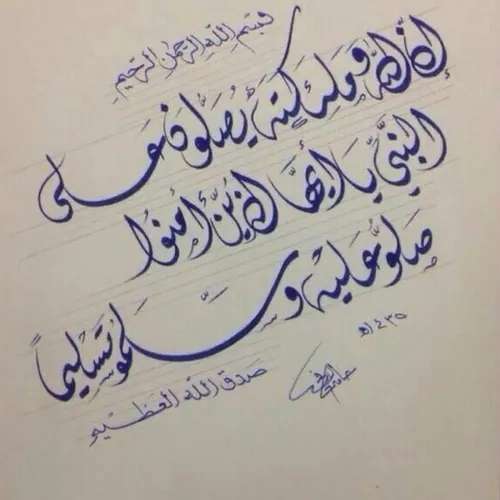 بسم الله الرحمن الرحيم
إن الله وملئكته يصلون على
النبي يا أيها الذين أمنوا
صلو عليه وسلمو تسليماً
١٤٣٥هـ
صدق الله العظيم